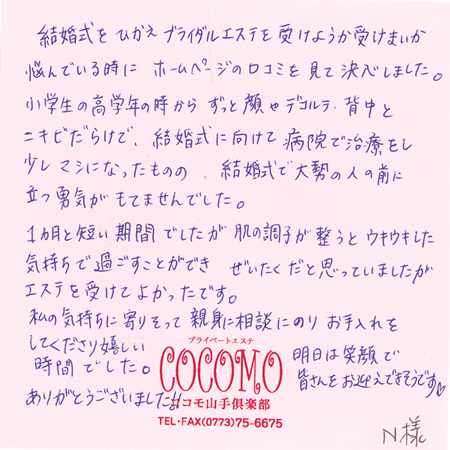 結婚式をひかえブライダルエステを受けようか受けまいか
悩んでいる時に ホームページの口コミを見て決心しました。
小学生の高学年の時から ずっと顔やデコルテ、背中と
ニキビだらけで、結婚式に向けて 病院で治療をし
少しマシになったものの、結婚式で大勢の人の前に
立つ勇気がもてませんでした。
1カ月と短い期間でしたが 肌の調子が整うとウキウキした
気持ちで過ごすことができ ぜいたくだと思っていましたが
エステを受けてよかったです。
私の気持ちに寄りそって 親身に相談にのり お手入れを
してくださり嬉しい
時間でした。
ありがとうございました!!
明日は笑顔で
皆さんをお迎えできそうです♡
プライベートエステ
COCOMO
ココモ山手倶楽部
TEL・FAX(0773)75-6675
N様